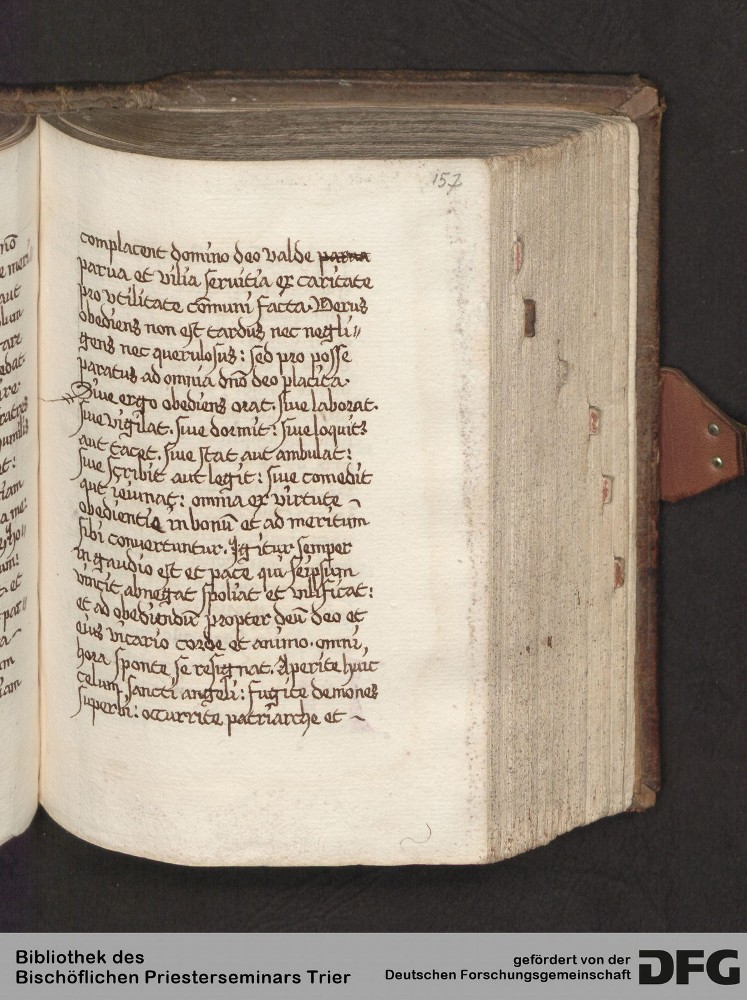 157
complacent domino deo valde parua
parua et vilia seruitia ex caritate
pro vtilitate cōmuni facta. Verus
obediens non est tardus nec negli〃
gens nec querulosus: sed pro posse
paratus ad omnia dn̄o deo placita.
Siue ergo obediens orat. siue laborat.
siue vigilat. siue dormit: siue loquit᷑
aut tacet. siue stat aut ambulat:
siue scribit aut legit: siue comedit
aut ieiunat: omnia ex virtute ~
obedientie in bonū et ad meritum
sibi conuertuntur. Igitur semper
in gaudio est et pace qui seipsum
vincit abnegat spoliat et vilificat:
et ad obediendū propter deū deo et
eius vicario corde et animo. omni,
hora sponte se resignat. Aperite huic
celum sancti angeli: fugite demones
superbi: occurrite patriarche et ~
Bibliothek des
Bischöflichen Priesterseminars Trier
gefördert von der
Deutschen Forschungsgemeinschaft
DFG